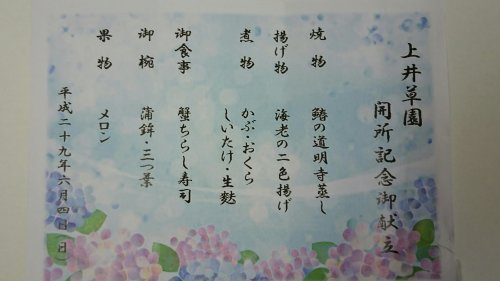 上井草園
開所記念御献立
焼物 鰆の道明寺蒸し
揚げ物 海老の二色揚げ
煮物 かぶ・おくら
しいたけ・生麩
御食事 蟹ちらし寿司
御椀 蒲鉾・三つ葉
果物 メロン
平成二十九年六月四日(日)